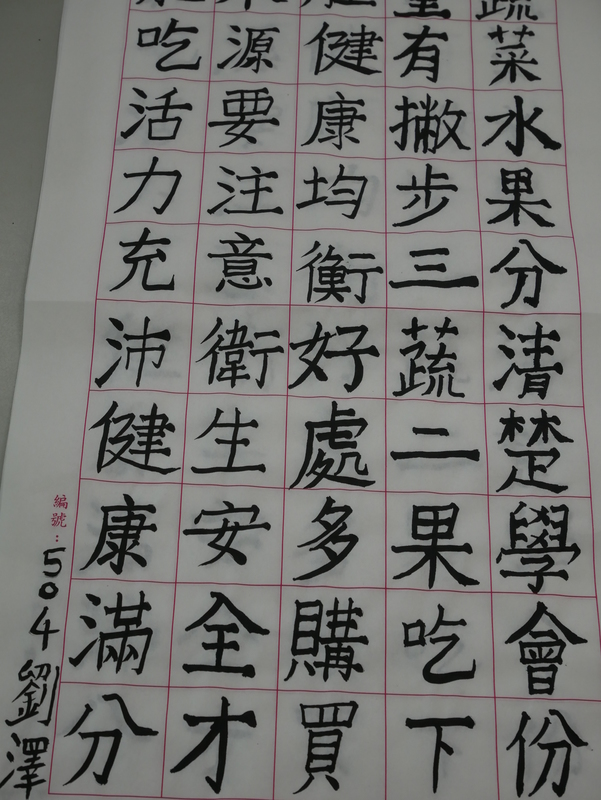 蔬菜水果分清楚學會份
量有撇步三蔬二果吃下
健康均衡好處多購買
來源要注意衛生安全才
吃活力充沛健康滿分
編號:504劉澤